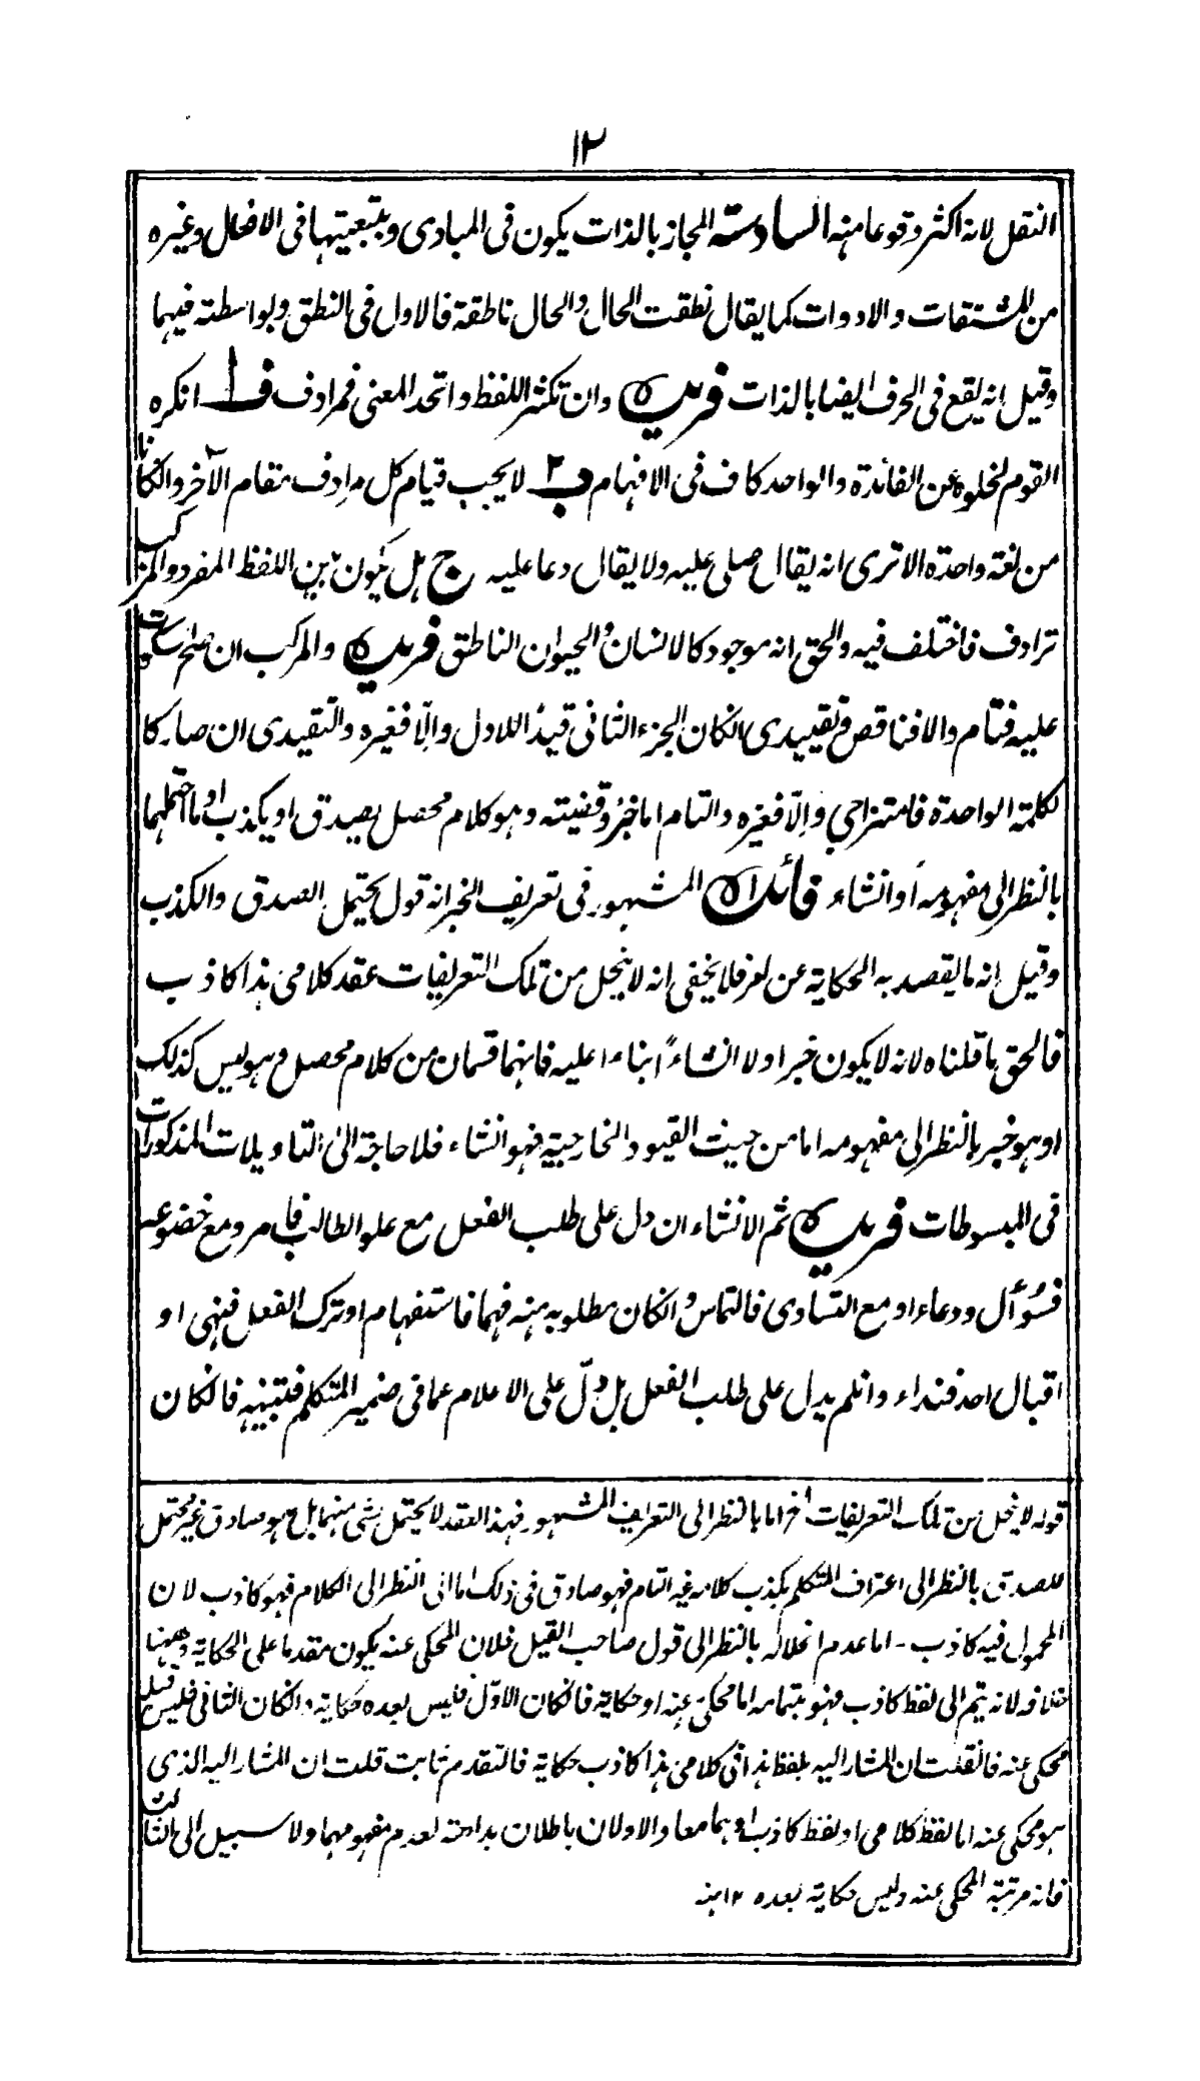 ١٢
النقل لانه اكثر وقوعا منه السادسة المجاز بالذات يكون فى المبادى وبتبعيتها فى الافعال وغيره
من المشتقات والادوات كما يقال نطقت الحال والحال ناطقة فالاول فى النطق وبواسطته فيهما
وقيل انه يقع فى الحرف ايضا بالذات فريدة وان تكثر اللفظ واتحد المعنى فمرادف ف ا انكره
القوم لخلوه عن الفائدة والواحد كاف فى الافهام ب لا يجب قيام كل مرادف مقام الآخر وانكانا
من لغة واحدة الا ترى انه يقال صلى عليه ولا يقال دعا عليه ج هل يكون بين اللفظ المفرد والمركب
ترادف فاختلف فيه والحق انه موجود كالانسان والحيوان الناطق فريدة والمركب ان صح سكوت
عليه فتام والا فناقص فتقييدى انكان الجزء الثانى قيدًا للاول والّا فغيره والتقيدى ان صار كا
لكلمة الواحدة فامتزاجي والّا فغيره والتام اما خبرٌ وقضيته وهو كلام محصل يصدق او يكذب او ما احتملهما
بالنظر الى مفهومه أو انشاء فائدة المشهور فى تعريف الخبر انه قول يحتمل الصدق والكذب
وقيل انه ما يقصد به الحكاية عن فلا يخفى انه لا ينحل من تلك التعريفات عقد كلامى هذا كاذب
فالحق ما قلناه لانه لا يكون خبرا ولا انشاءً ابناءا عليه فانهما قسمان من كلام محصل وهو ليس كذلك
او هو خبر بالنظر الى مفهومه اما من حيث القيود الخارجية فهو انشاء فلا حاجة الى التاويلات المذكورات
فى المبسوطات فريدة ثم الانشاء ان دل على طلب الفعل مع علو الطالب فامر ومع خضوعه
فسُؤال ودعاء او مع التساوى فالتماس وانكان مطلوبه منه فهما فاستفهام او ترك الفعل فنهى او
اقبال احد فنداء وانلم يدل على طلب الفعل بل دلّ على الاعلام عما فى ضمير المتكلم فتنبيه فانكان
قوله لا ينحل من تلك التعريفات آخر اما بالنظر الى التعريف المشهور فهذا العقد لا يحتمل بشى منهما بل هو صادق غير محتمل
للصدق بالنظر الى اعتراف المتكلم بكذب كلامه غير التام فهو صادق فى ذلك اما فى النظر الى الكلام فهو كاذب لان
المحمول فيه كاذب - اما عدم انحلاله بالنظر الى قول صاحب القيل فلان المحكى عنه يكون مقدما على الحكاية وههنا
خلافه لانه يتم الى لفظ كاذب فهو بتمامه اما محكىّ عنه او حكاية فانكان الاوّل فليس بعده حكاية وانكان الثانى فليس قبله
محكى عنه فانقلت ان المشار اليه بلفظ هذا فى كلامى هذا كاذب حكاية فالتقدم ثابت قلت ان المشار اليه الذى
هو محكى عنه اما لفظ كلامى او لفظ كاذب او هما معا والاولان باطلان بداهة لعدم مفهومهما ولا سبيل الى الثالث
فانه مرتبة المحكى عنه وليس حكاية بعده ١٢ منه